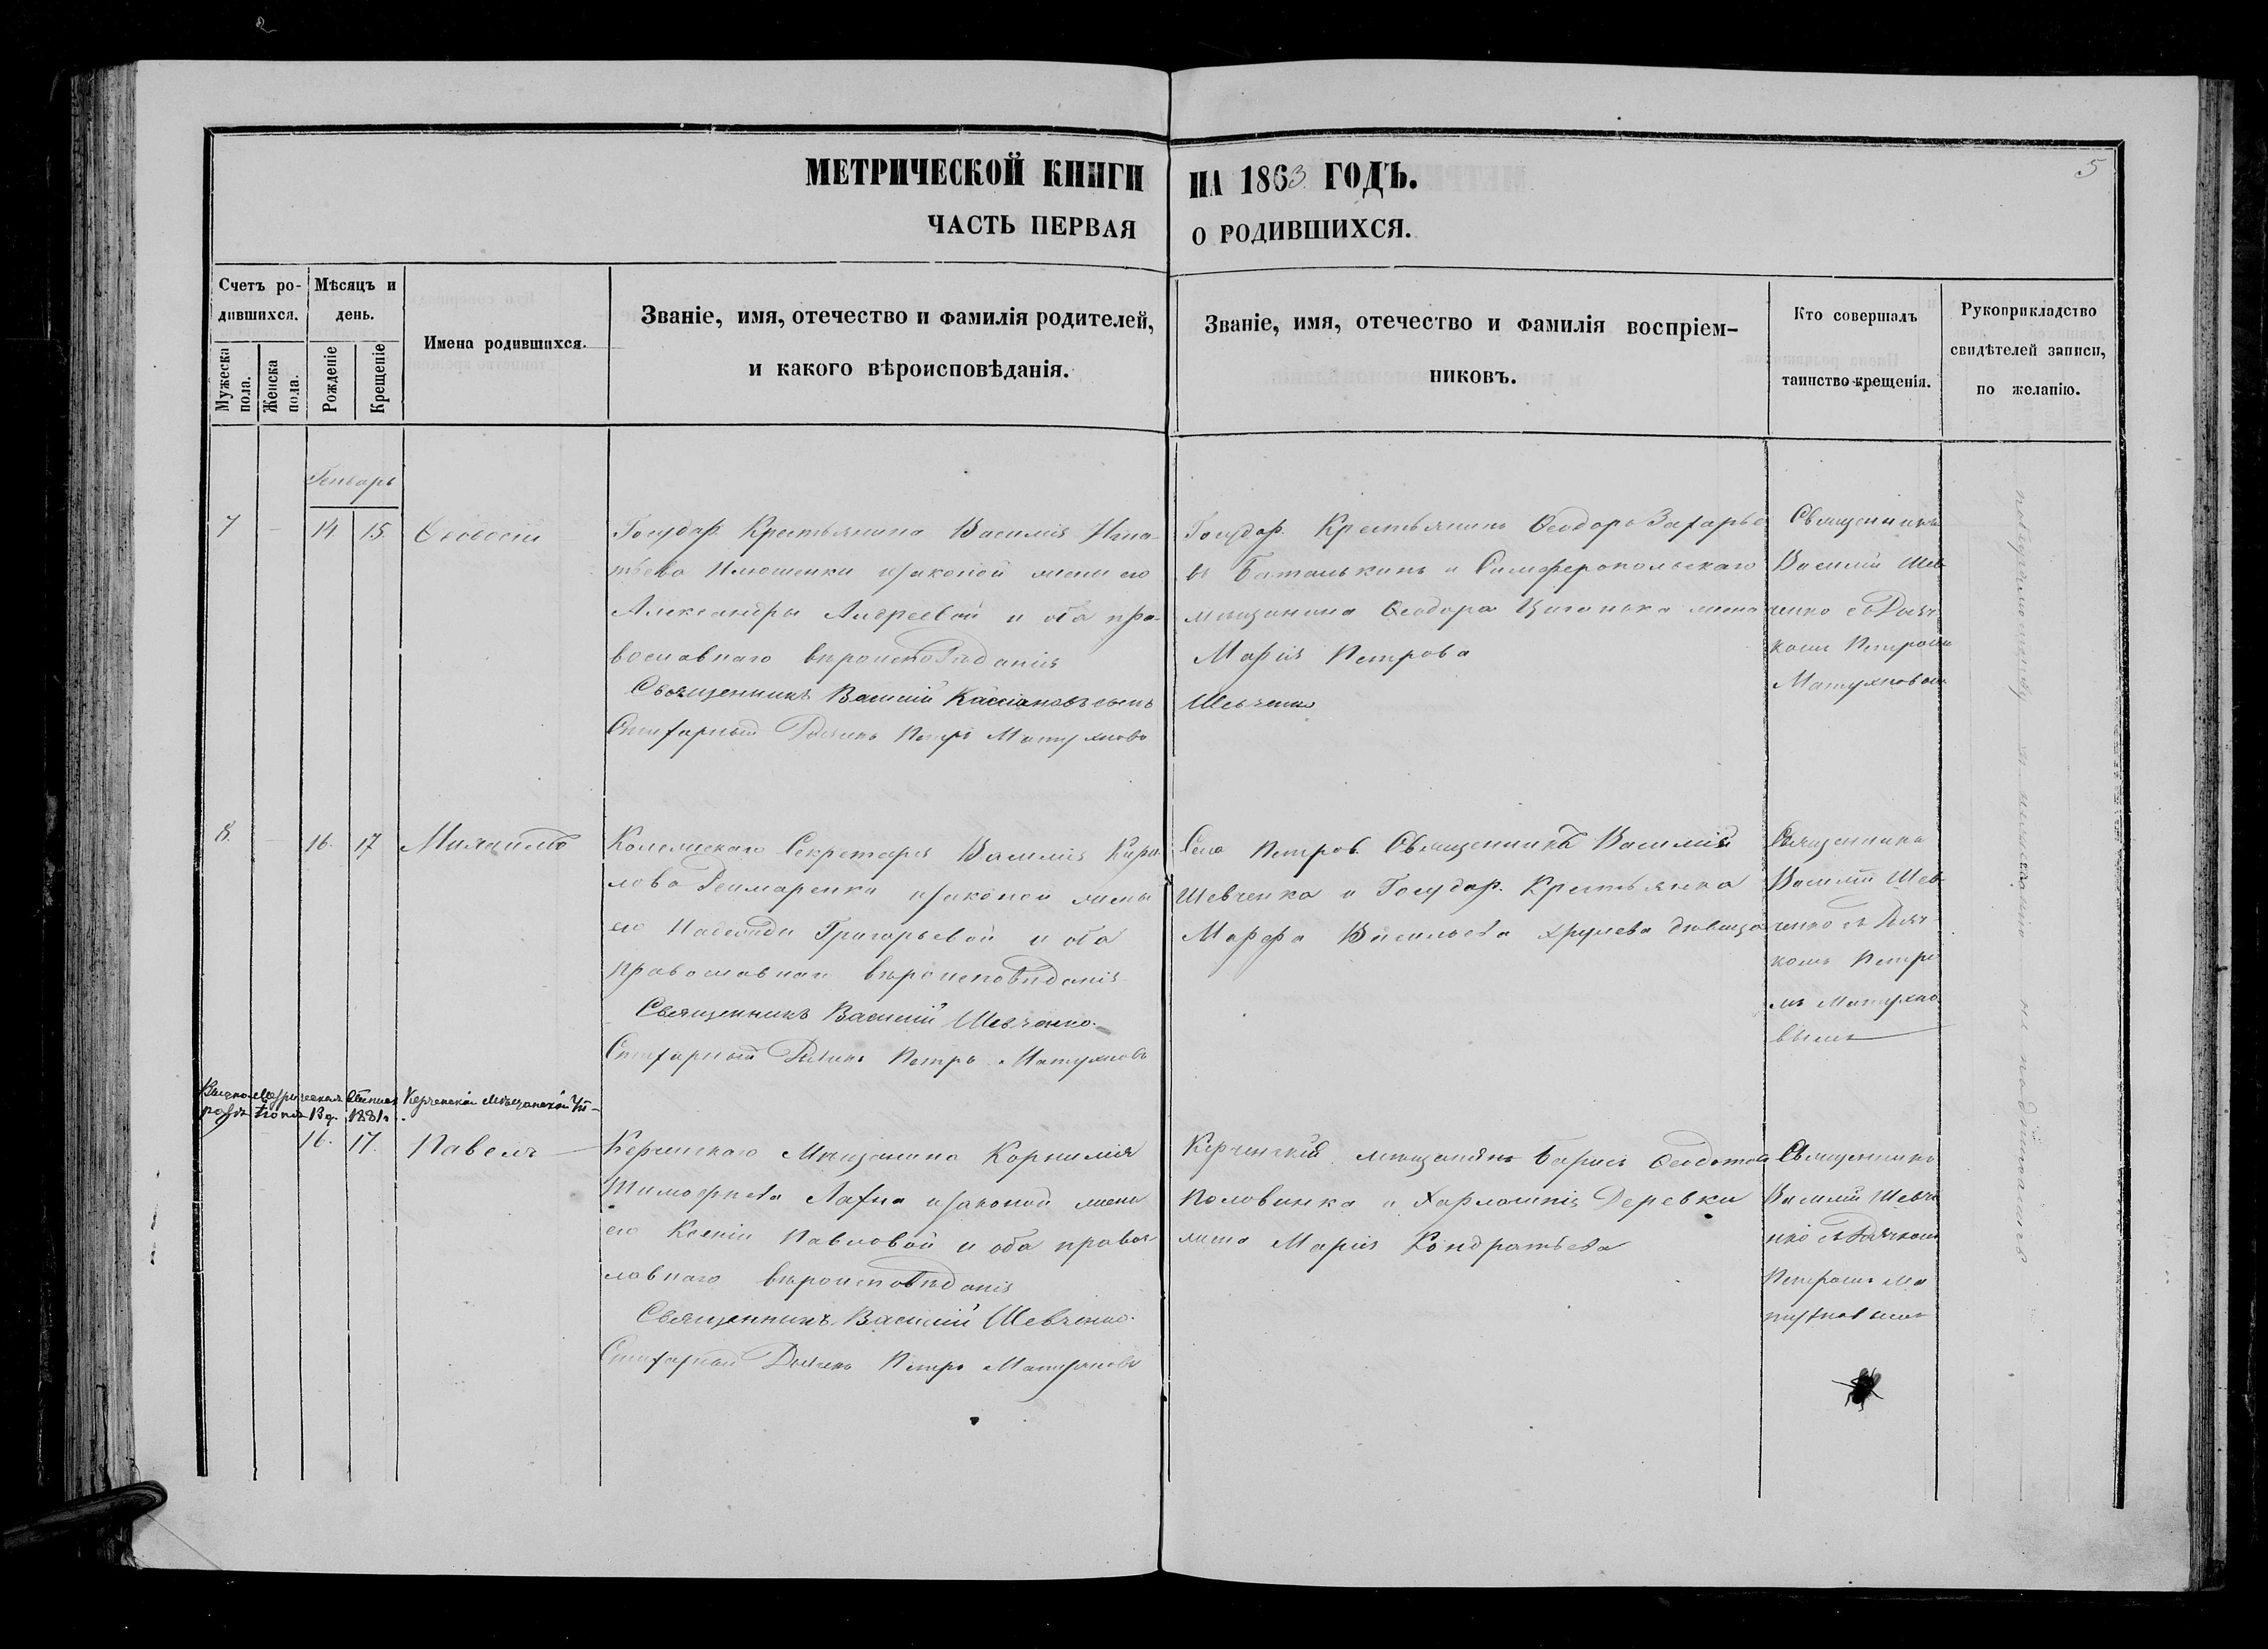 2
МЕТРИЧЕСКОЙ КНИГИ НА 1863 ГОДЪ.
5
ЧАСТЬ ПЕРВАЯ О РОДИВШИХСЯ.
Счетъ ро-
дившихся.
Мужеска
пола.
Женска
пола.
Мѣсяцъ и
день.
Рожденіе
Крещеніе
Имена родившихся.
Званіе, имя, отечество и фамилія родителей,
и какого вѣроисповѣданія.
Званіе, имя, отечество и фамилія воспріем-
никовъ.
Кто совершалъ
таинство крещенія.
Рукоприкладство
свидѣтелей записи,
по желанію.
Генварь
7 - 14 15 Ѳеодосій
Государ. Крестьянина Василія Игна-
тьева Илюшенки изаконой жены его
Александры Андреевой и оба пра-
вославнаго вѣроисповѣданія
Священникъ Василій Кассіановъ сынъ
Шевченко
Дьячекъ Петръ Матухновъ
Государ. Крестьянинъ Ѳеодоръ Захарье
въ и Симферопольскаго
мѣщанина Ѳеодора жена
Марія Петрова
Священникъ
Василій Шев
ченко съ Дьяч
комъ Петромъ
Матухновым
8. - 16. 17 Михаилъ
Колежскаго Секретаря Василія Кири
лова изаконой жены
его Надежды Григорьевой и оба
православнаго вѣроисповѣданія
Священникъ Василій Шевченко.
Дьячекъ Петръ Матухновъ
Села Петров. Священникъ Василій
Шевченка и Государ. Крестьянка
Марфа Васильева Хрулева дѣвица
Священникъ
Василій Шев
ченко съ Дьяч
комъ Петро
мъ Матухно
вымъ
1881г. Керченской Мѣщанской Уп-
16. 17. Павелъ
Керченскаго Мѣщанина Корнилія
Тимофѣева изаконой жены
его Ксеніи Павловой и оба правос
лавнаго вѣроисповѣданія
Священникъ Василій Шевченко.
Дьячекъ Петръ Матухновъ
Керченскій мѣщанинъ Борисъ Ѳеодотов
Половинка и Деревки
жена Марія Кондратьева
Священникъ
Василій Шевче
нко съ Дьячкомъ
Петромъ Ма
тухновымъ